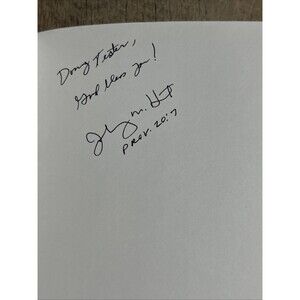 Doug Tester,
God bless you!
Johnny M. Hunt
Prov. 20:7